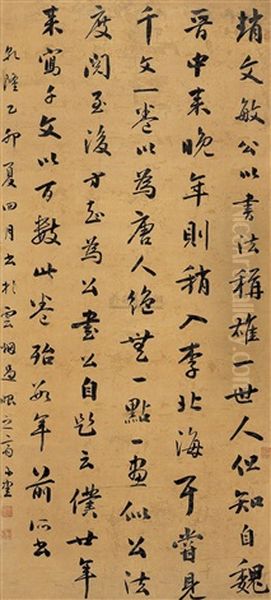 趙文敏公以書法稱雄世人但知自魏
晉中來晚年則稍入李北海耳嘗見
千文一卷以為唐人絕無一點一畫似公法
度閱至後方知為公書公自題云僕廿年
來寫千文以百數此卷殆數年前所書
乾隆乙卯夏四月書於雲烟過眼之